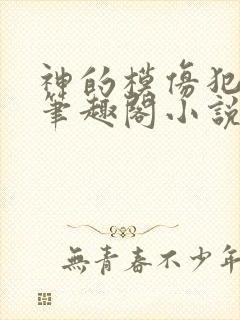 神的模傷犯
筆趣閣小説
無青春不少年